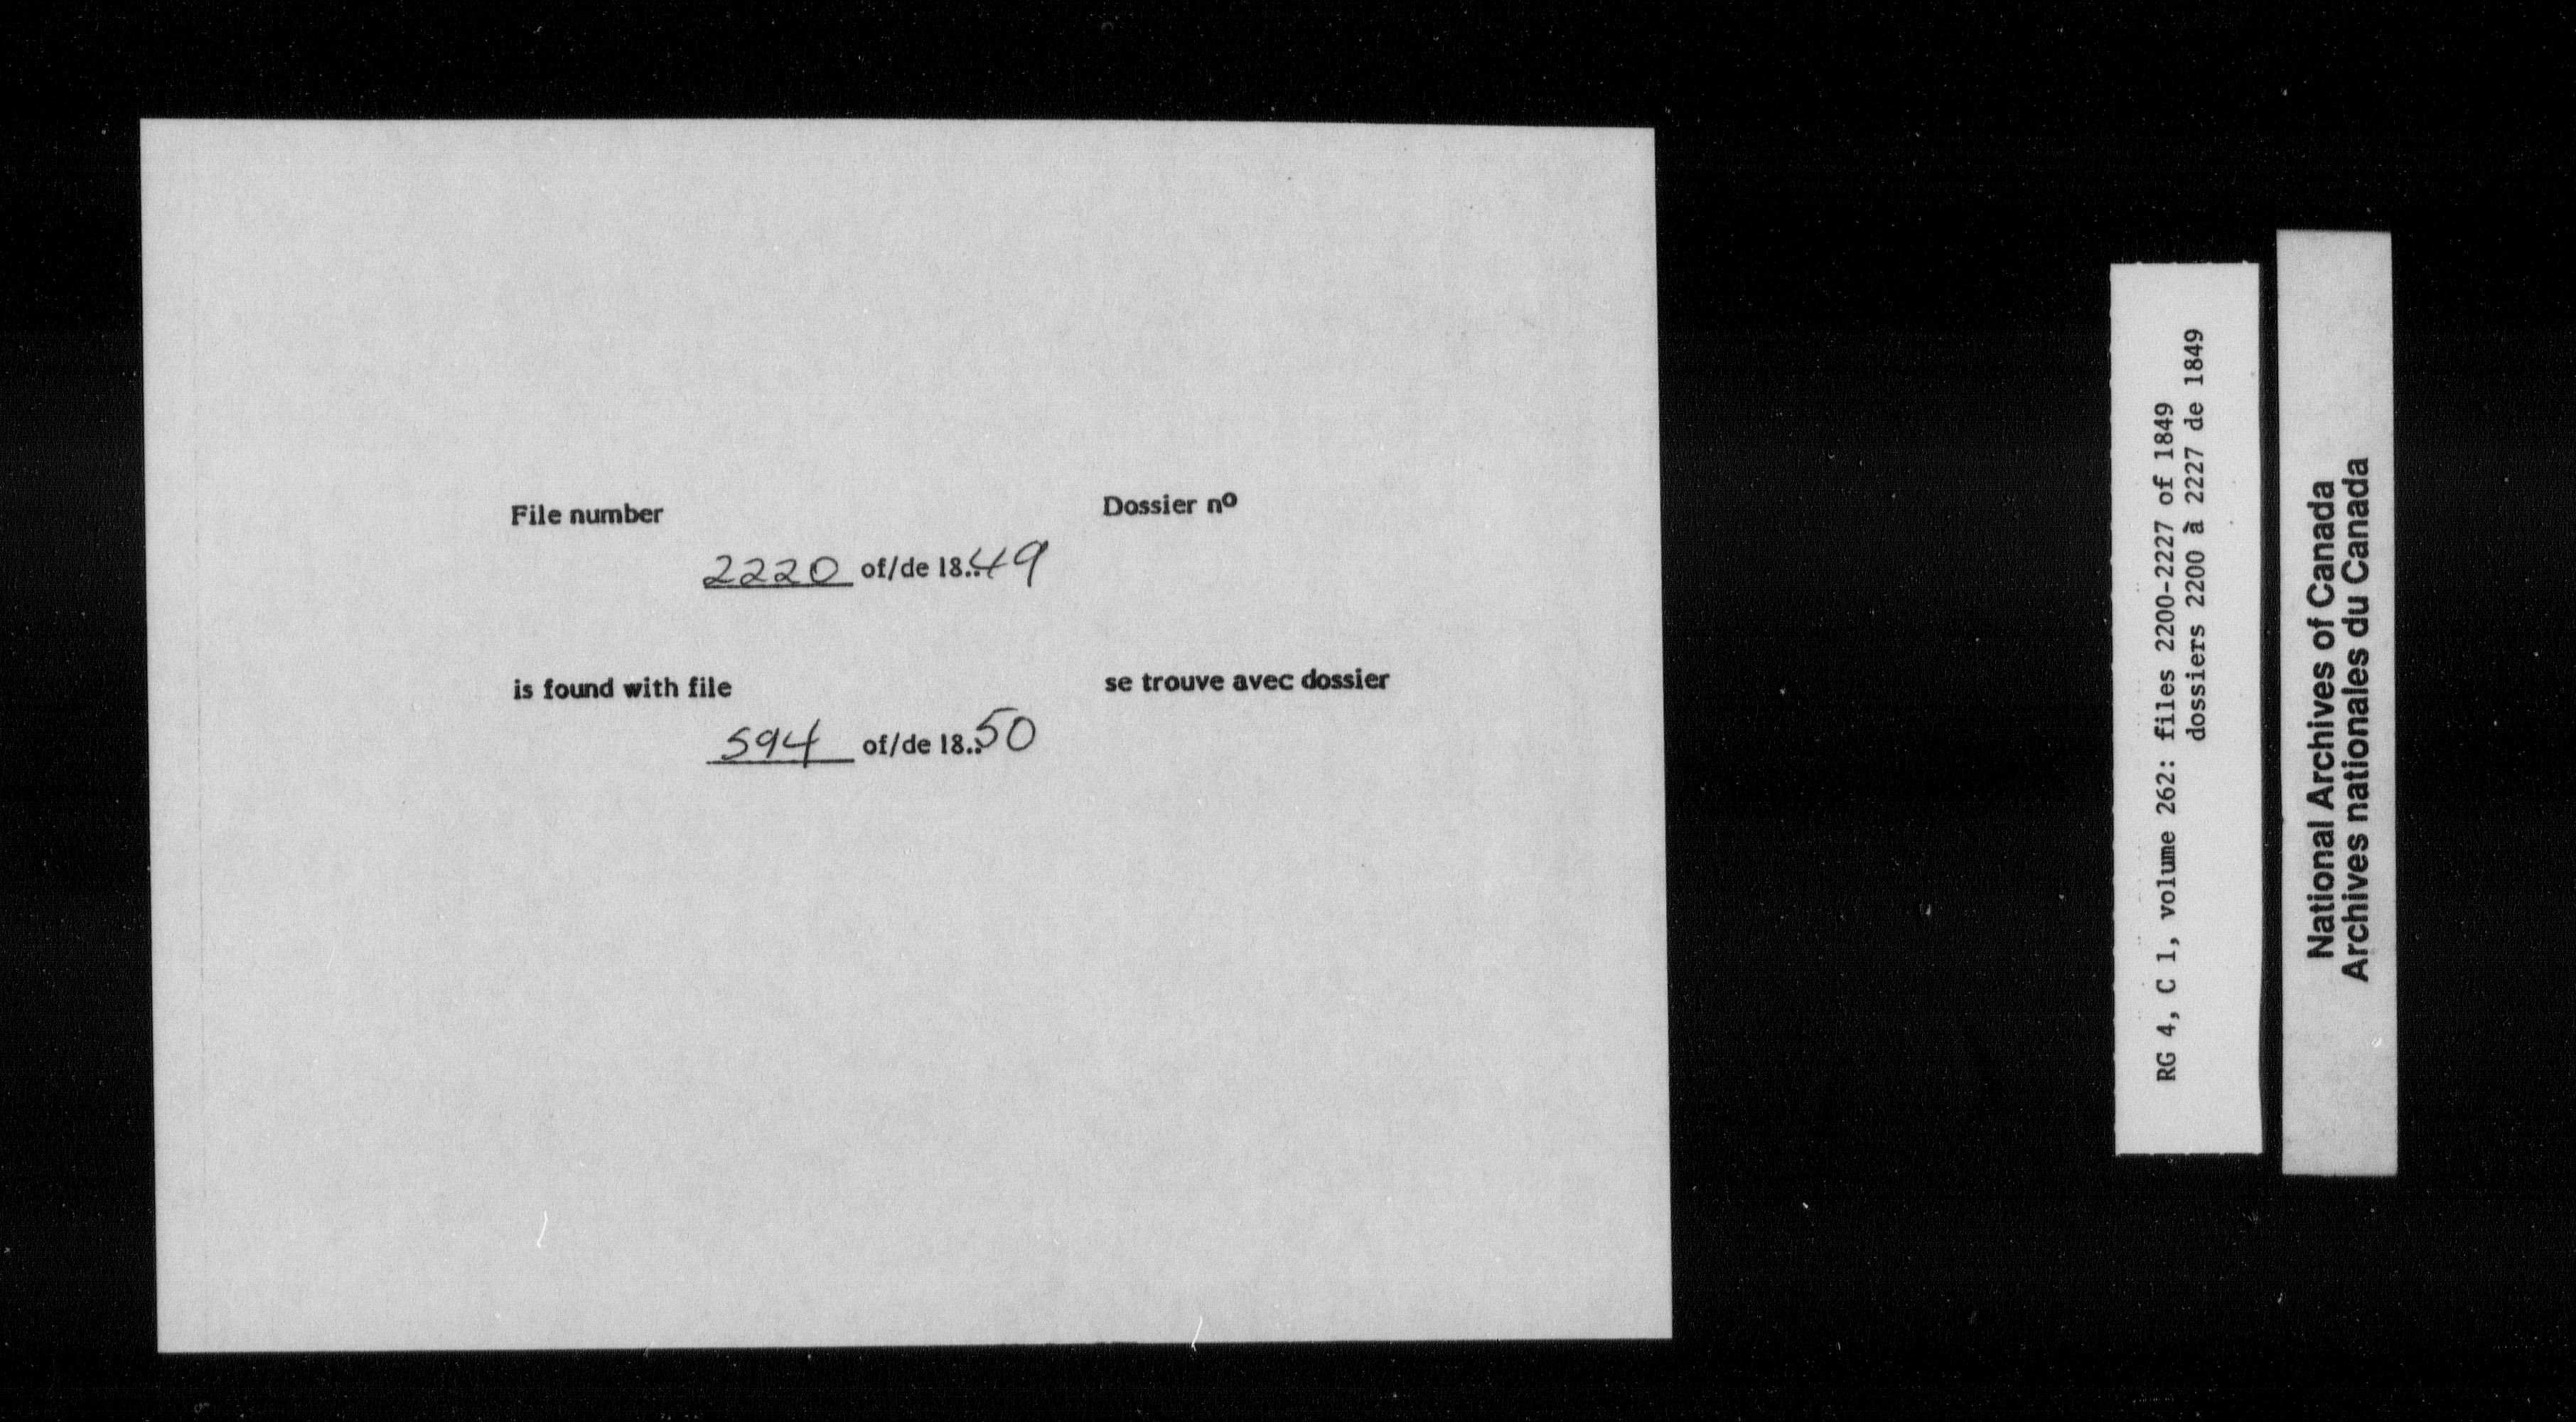 File number
Dossier nº
2220 of/de 18..49
is found with file
se trouve avec dossier
594 of/de 18..50
RG 4, C 1, volume 262: files 2200-2227 of 1849
dossiers 2200 à 2227 de 1849
National Archives of Canada
Archives nationales du Canada